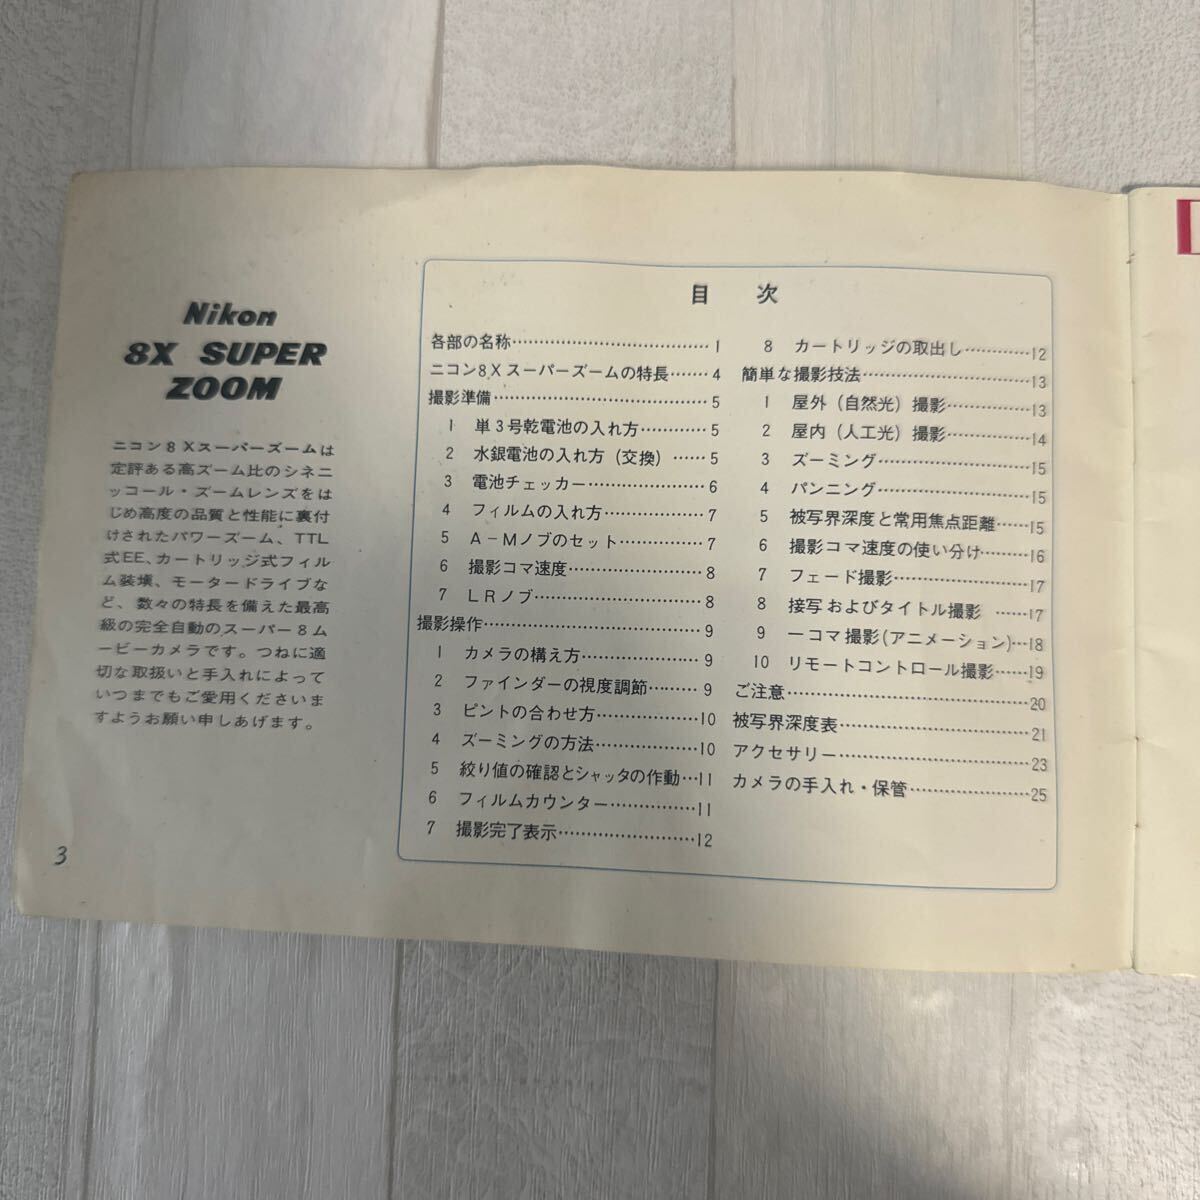 Nikon
8X SUPER
ZOOM
ニコン8Xスーパーズームは
定評ある高ズーム比のシネニ
ッコール・ズームレンズをは
じめ高度の品質と性能に裏付
けされたパワーズーム、TTL
式EE、カートリッジ式フィル
ム装塡、モータードライブな
ど、数々の特長を備えた最高
級の完全自動のスーパー8ム
ービーカメラです。つねに適
切な取扱いと手入れによって
いつまでもご愛用くださいま
すようお願い申しあげます。
3
目 次
各部の名称……………………………… 1
ニコン8Xスーパーズームの特長……4
撮影準備………………………………… 5
1 単3号乾電池の入れ方……………5
2 水銀電池の入れ方(交換)……5
3 電池チェッカー…………………6
4 フィルムの入れ方………………7
5 A-Mノブのセット……………7
6 撮影コマ速度……………………8
7 LRノブ…………………………8
撮影操作…………………………………9
1 カメラの構え方…………………9
2 ファインダーの視度調節………9
3 ピントの合わせ方………………10
4 ズーミングの方法………………10
5 絞り値の確認とシャッタの作動…11
6 フィルムカウンター……………11
7 撮影完了表示……………………12
8 カートリッジの取出し…………12
簡単な撮影技法…………………………13
1 屋外(自然光)撮影……………13
2 屋内(人工光)撮影……………14
3 ズーミング………………………15
4 パンニング………………………15
5 被写界深度と常用焦点距離……15
6 撮影コマ速度の使い分け………16
7 フェード撮影……………………17
8 接写およびタイトル撮影 ……17
9 一コマ撮影(アニメーション)…18
10 リモートコントロール撮影……19
ご注意……………………………………20
被写界深度表……………………………21
アクセサリー……………………………23
カメラの手入れ・保管…………………25